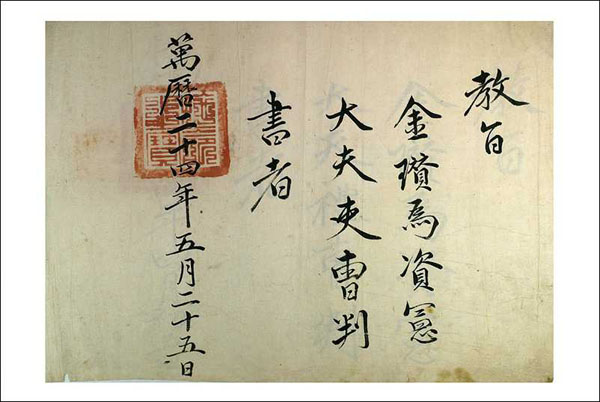 教旨
金瓚爲資憲
大夫吏曹判
書者
萬曆二十四年五月二十五日